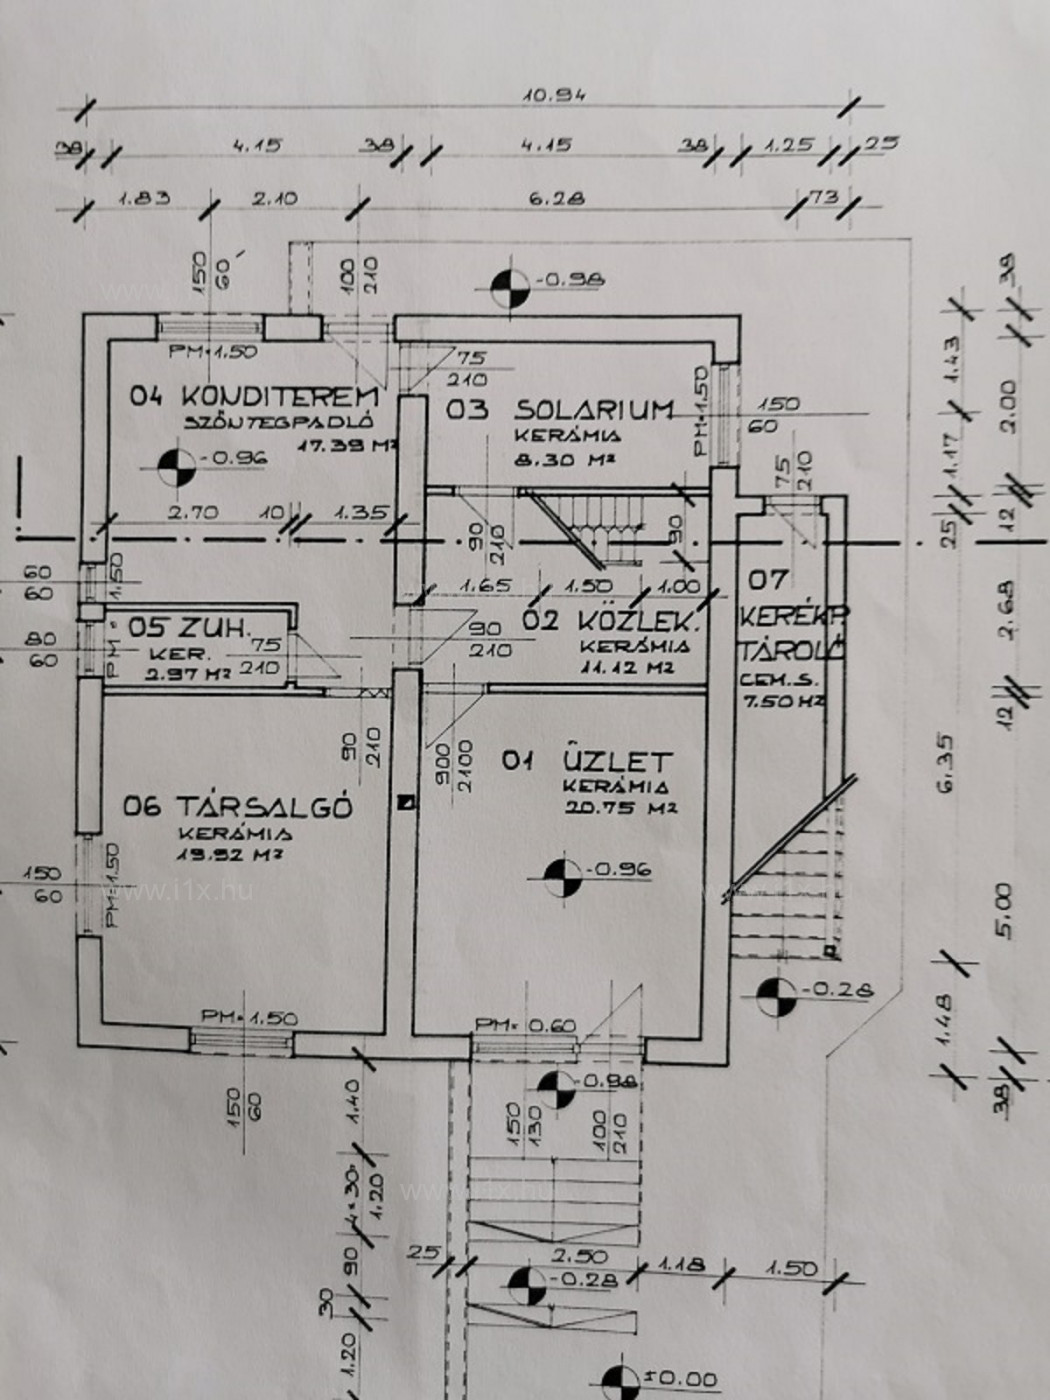 10.94
38 4.15 38 4.15 38 1.25 25
1.83 2.10 6.28 73
150
60
100
210
-0.98
38
PM=1.50
75
210
04 KONDITEREM
SZŐNYEGPADLÓ
17.39 M²
-0.96
03 SOLARIUM
KERÁMIA
8.30 M²
PM=1.50
150
60
75
210
1.43
2.00
1.17
12
25
2.70 10 1.35
90
210
90
60
60
1.50
1.65 1.50 1.00
07
KERÉKP.
TÁROLÓ
CEM.S.
7.50 M²
02 KÖZLEK.
KERÁMIA
11.12 M²
90
210
05 ZUH.
KER.
2.97 M²
75
210
80
60
PM=
2.68
12
90
210
900
2100
01 ÜZLET
KERÁMIA
20.75 M²
06 TÁRSALGÓ
KERÁMIA
19.92 M²
6.35
150
60
PM=1.50
www.i1x.hu
-0.96
5.00
-0.28
PM=1.50
PM= 0.60
1.48
38
150
60
1.40
-0.98
150
130
100
210
4×30
1.20
www.i1x.hu
90
25 2.50 1.18 1.50
-0.28
30
1.20
±0.00